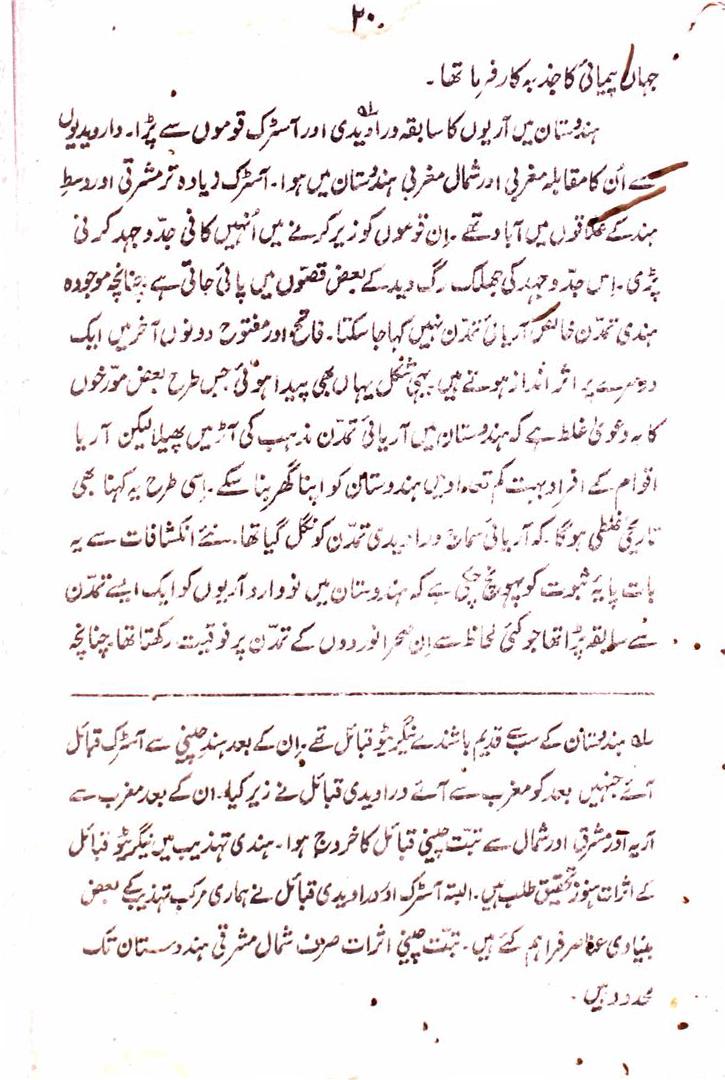 ۲۰
جہاں پیمائی کا جذبہ کارفرما تھا۔
ہندوستان میں آریوں کا سابقہ دراویدی اور آسٹرک قوموں سے پڑا۔ دارویدیوں
سے اُن کا مقابلہ مغربی اور شمال مغربی ہندوستان میں ہوا۔ آسٹرک زیادہ تر مشرقی اور وسطِ
ہند کے علاقوں میں آباد تھے۔ اِن قوموں کو زیر کرنے میں اُنہیں کافی جدّ و جہد کرنی
پڑی۔ اِس جدّ و جہد کی جھلک رگ وید کے بعض قصّوں میں پائی جاتی ہے۔ چنانچہ موجودہ
ہندی تمدّن خالصۃً آریائی تمدّن نہیں کہا جا سکتا۔ فاتح اور مفتوح دونوں آخر میں ایک
دوسرے پر اثر انداز ہوتے ہیں۔ یہی شکل یہاں بھی پیدا ہوئی۔ جس طرح بعض مورّخوں
کا یہ دعویٰ غلط ہے کہ ہندوستان میں آریائی تمدّن مذہب کی آڑ میں پھیلا لیکن آریا
اقوام کے افراد بہت کم تعداد میں ہندوستان کو اپنا گھر بنا سکے۔ اِسی طرح یہ کہنا بھی
تاریخی غلطی ہوگا کہ آریائی سماج دراویدی تمدّن کو نگل گیا تھا۔ نئے انکشافات سے یہ
بات پایۂ ثبوت کو پہونچ چکی ہے کہ ہندوستان میں نو وارد آریوں کو ایک ایسے تمدّن
سے سابقہ پڑا تھا جو کئی لحاظ سے اِن صحرا نوردوں کے تمدّن پر فوقیت رکھتا تھا۔ چنانچہ
ہندوستان کے سب سے قدیم باشندے نیگریٹو قبائل تھے۔ اِن کے بعد ہند چینی سے آسٹرک قبائل
آئے جنہیں بعد کو مغرب سے آئے دراویدی قبائل نے زیر کیا۔ ان کے بعد مغرب سے
آریہ اور مشرقی اور شمال سے تبّت چینی قبائل کا خروج ہوا۔ ہندی تہذیب میں نیگریٹو قبائل
کے اثرات ہنوز تحقیق طلب ہیں۔ البتہ آسٹرک اور دراویدی قبائل نے ہماری مرکب تہذیب کے بعض
بنیادی عناصر فراہم کئے ہیں۔ تبّت چینی اثرات صرف شمال مشرقی ہندوستان تک
محدود ہیں۔